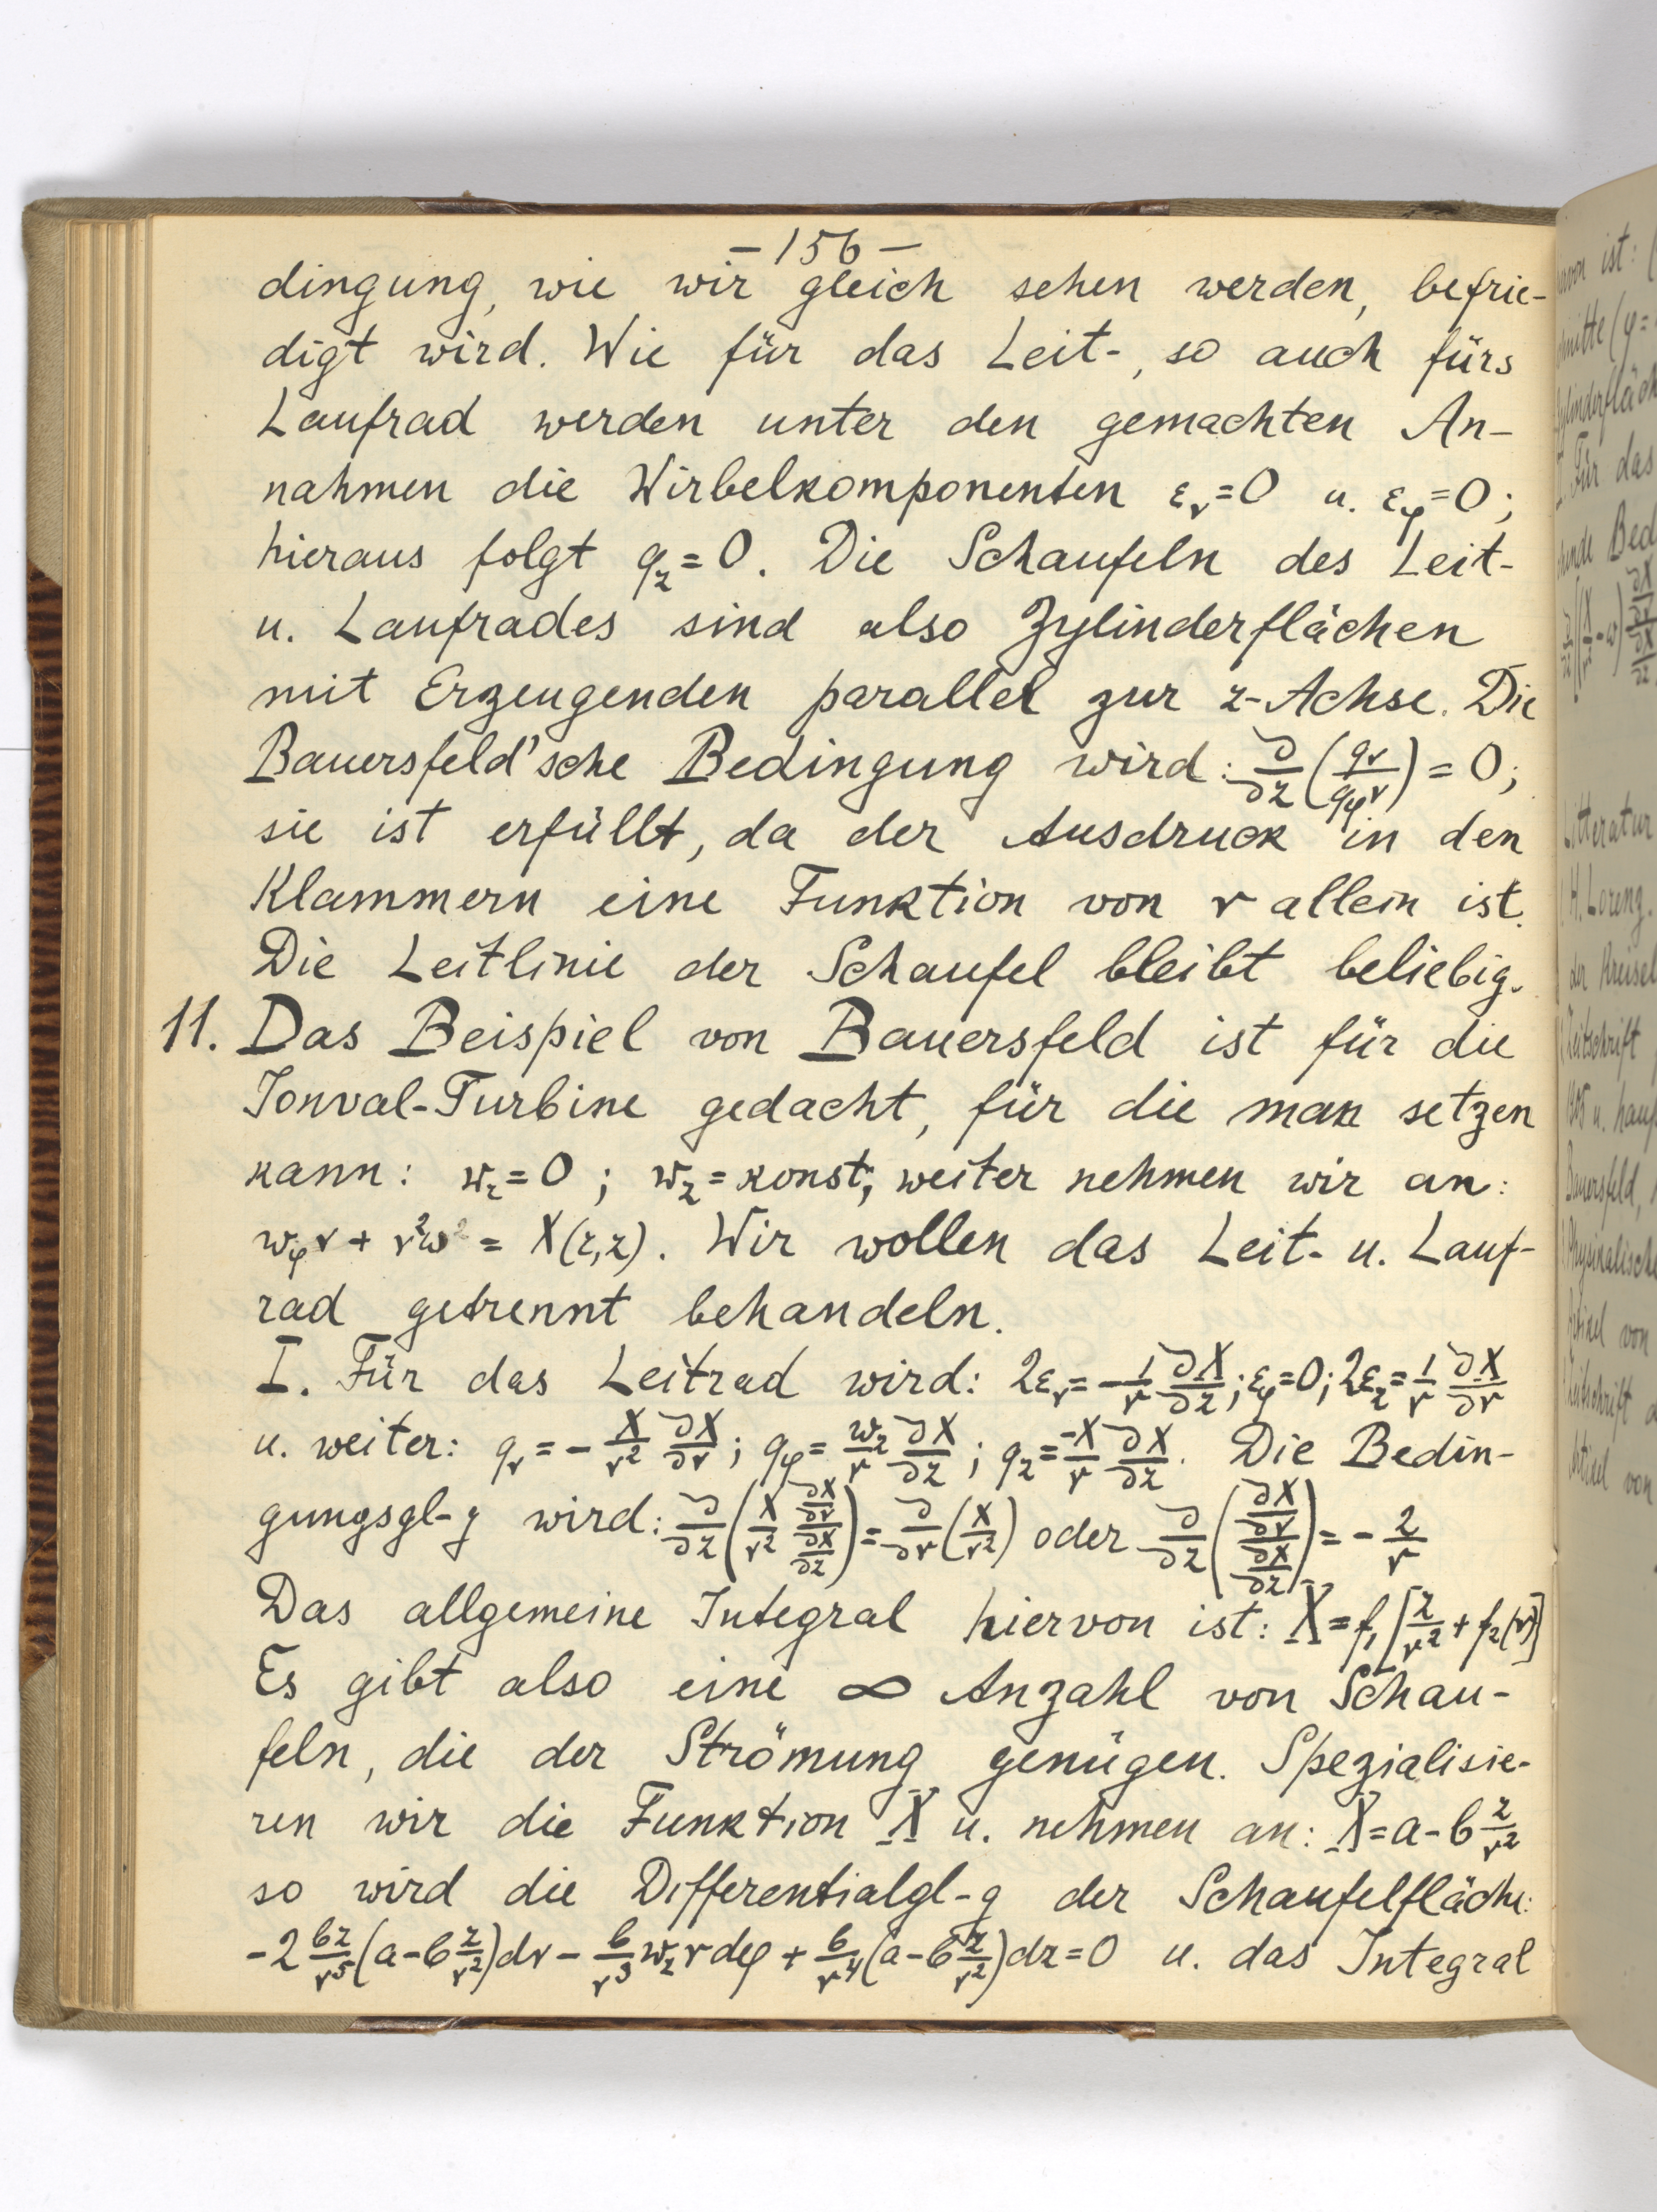 – 156 –
dingung, wie wir gleich sehen werden, befrie-
digt wird. Wie für das Leit-, so auch fürs
Laufrad werden unter den gemachten An-
nahmen die Wirbelkomponenten ε_r=0 u. ε_φ=0;
hieraus folgt q_z=0. Die Schaufeln des Leit-
u. Laufrades sind also Zylinderflächen
mit Erzeugenden parallel zur z-Achse. Die
Bauersfeld'sche Bedingung wird: ∂/∂z (q_r/(q_φ r)) = 0;
sie ist erfüllt, da der Ausdruck in den
Klammern eine Funktion von r allein ist.
Die Leitlinie der Schaufel bleibt beliebig.
11. Das Beispiel von Bauersfeld ist für die
Jonval-Turbine gedacht, für die man setzen
kann: w_r=0; w_z=konst; weiter nehmen wir an:
w_φ r + r²ω = X(r,z). Wir wollen das Leit- u. Lauf-
rad getrennt behandeln.
I. Für das Leitrad wird: 2ε_r = -1/r ∂X/∂z; ε_φ=0; 2ε_z = 1/r ∂X/∂r
u. weiter: q_r = - X/r² ∂X/∂r; q_φ = w_z/r ∂X/∂z; q_z = -X/r ∂X/∂z. Die Bedin-
gungsgl-g wird: ∂/∂z (X/r² (∂X/∂r)/(∂X/∂z)) = ∂/∂r (X/r²) oder ∂/∂z ((∂X/∂r)/(∂X/∂z)) = - 2/r
Das allgemeine Integral hiervon ist: X = f₁[z/r² + f₂(r)]
Es gibt also eine ∞ Anzahl von Schau-
feln, die der Strömung genügen. Spezialisie-
ren wir die Funktion X u. nehmen an: X = a - b z/r²
so wird die Differentialgl-g der Schaufelfläche:
-2 bz/r⁵ (a - b z/r²) dr - b/r³ w_z r dφ + b/r⁴ (a - b z/r²) dz = 0 u. das Integral
ist: (
Für das
Bed
Litteratur
H. Lorenz.
der Kreisel
Zeitschrift
Bauersfeld,
Physikalische
Artikel von
Zeitschrift
von